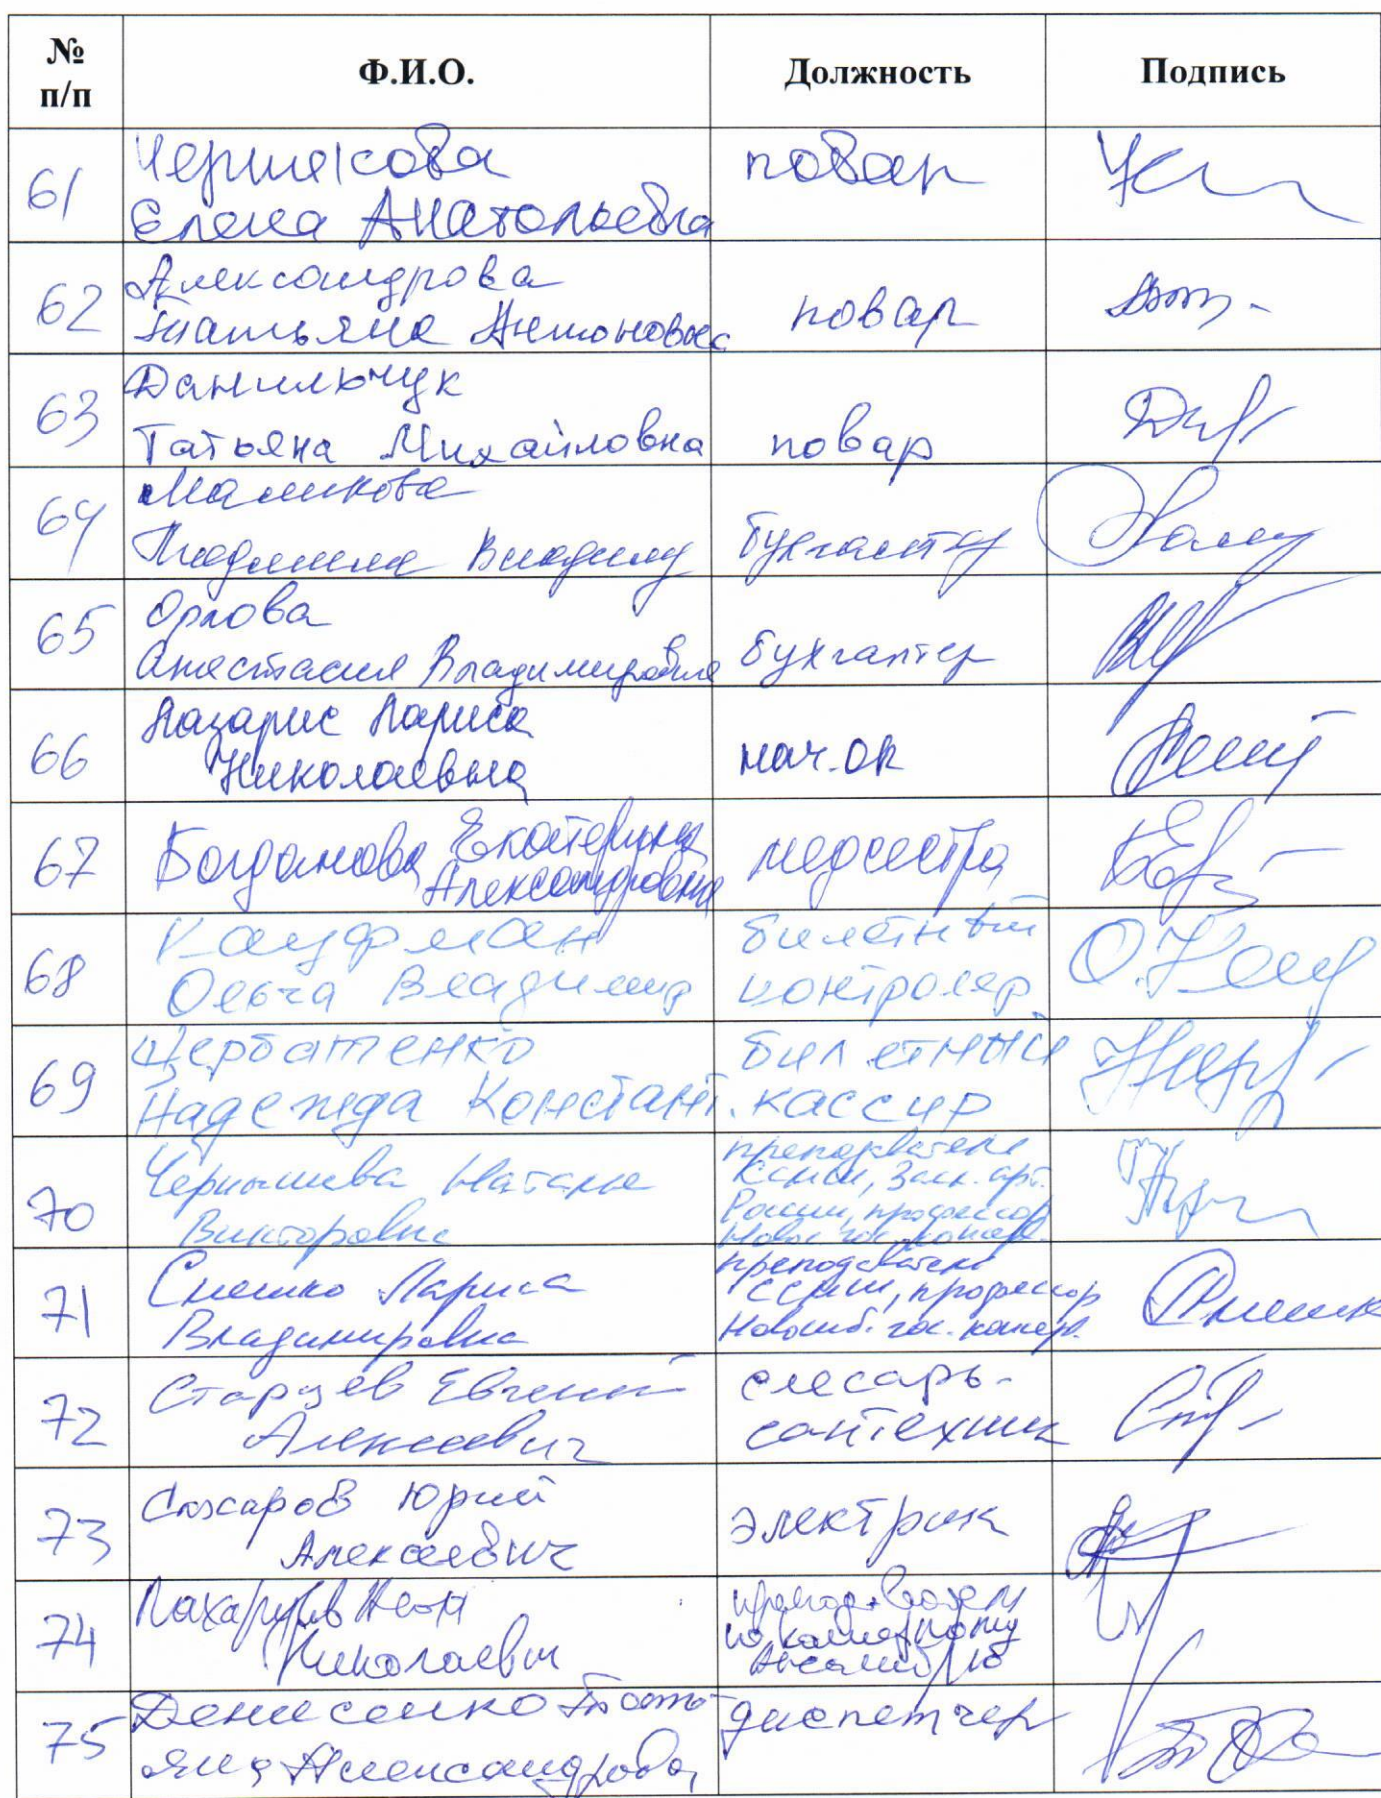 № п/п Ф.И.О. Должность Подпись
61
Елена Анатольевна
повар
62
Александрова
Татьяна Антоновна
повар
63
Данильчук
Татьяна Михайловна
повар
64
Маликова
Людмила
бухгалтер
65
Орлова
Анастасия Владимировна
бухгалтер
66
Лазарис Лариса
Николаевна
нач. ОК
67
Богданова Екатерина
Александровна
медсестра
68
Кауфман
Ольга Владимир
билетный
контролер
69
Щербатенко
Надежда Констант.
билетный
кассир
70
Наталье
Викторовна
преподаватель
засл. арт.
России, профессор
71
Смешко Лариса
Владимировна
преподаватель
ССМШ, профессор
Новосиб. гос. консерв.
72
Старцев Евгений
Алексеевич
слесарь-
сантехник
73
Юрий
Алексеевич
электрик
74
Николаевич
по камерному
ансамблю
75
Денисенко Тать-
яна Александровна
диспетчер